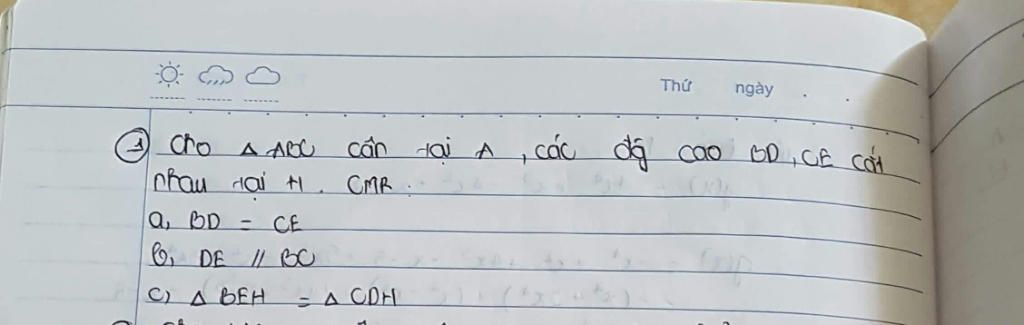 Thứ ngày . .
① Cho Δ ABC cân tại A, các đg cao BD, CE cắt
nhau tại H. CMR.
a, BD = CE
b, DE // BC
c, Δ BEH = Δ CDH